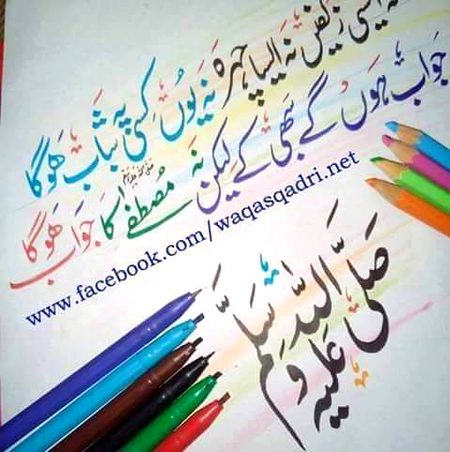 نہ ایسی زلفیں نہ ایسا چہرہ نہ یوں کسی پہ شباب ہوگا
جواب ہوں گے سبھی کے لیکن نہ مصطفےٰ ﷺ کا جواب ہوگا
www.facebook.com/waqasqadri.net
صَلَّی اللہُ عَلَیْہِ وَسَلَّمَ